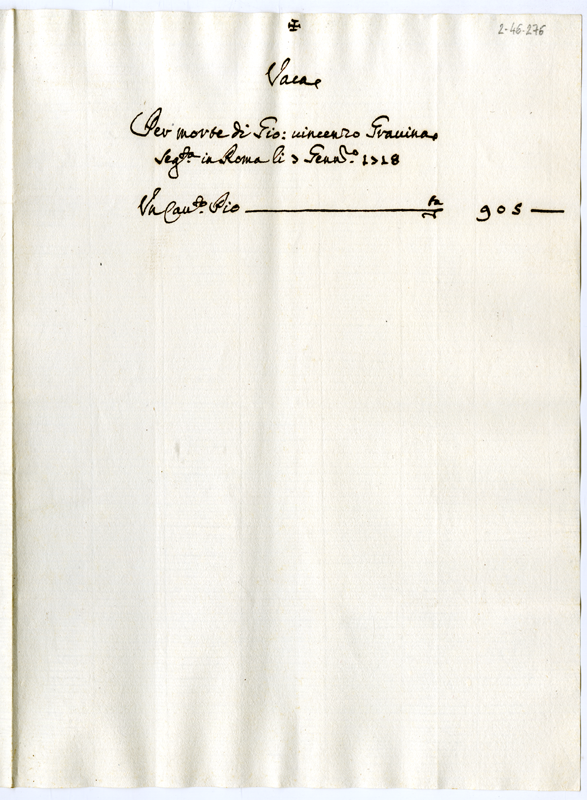 ✠
2-46-276
Vaca
Per morte di Gio: vincenzo Gravina
seg.ta in Roma li 7 Genn.o 1718
Un Cau.to Pio 905